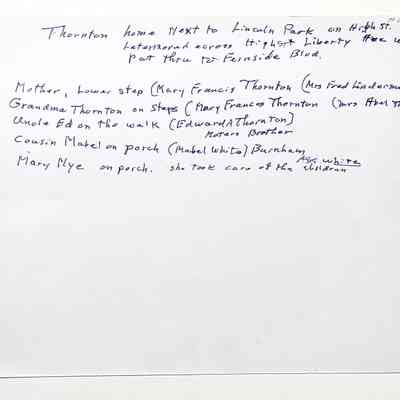 Thornton home Next to Lincoln Park on High St.
Later moved across High St Liberty Ave
Put thru to Fernside Blvd.
Mother, Lower step (Mary Francis Thornton (Mrs Fred Linderman
Grandma Thornton on steps (Mary Frances Thornton (Mrs Abel
Uncle Ed on the walk (Edward A Thornton)
Moters Brother
Cousin Mabel on porch (Mabel White) Burnham
Mary Nye on porch. she took care of the White
children